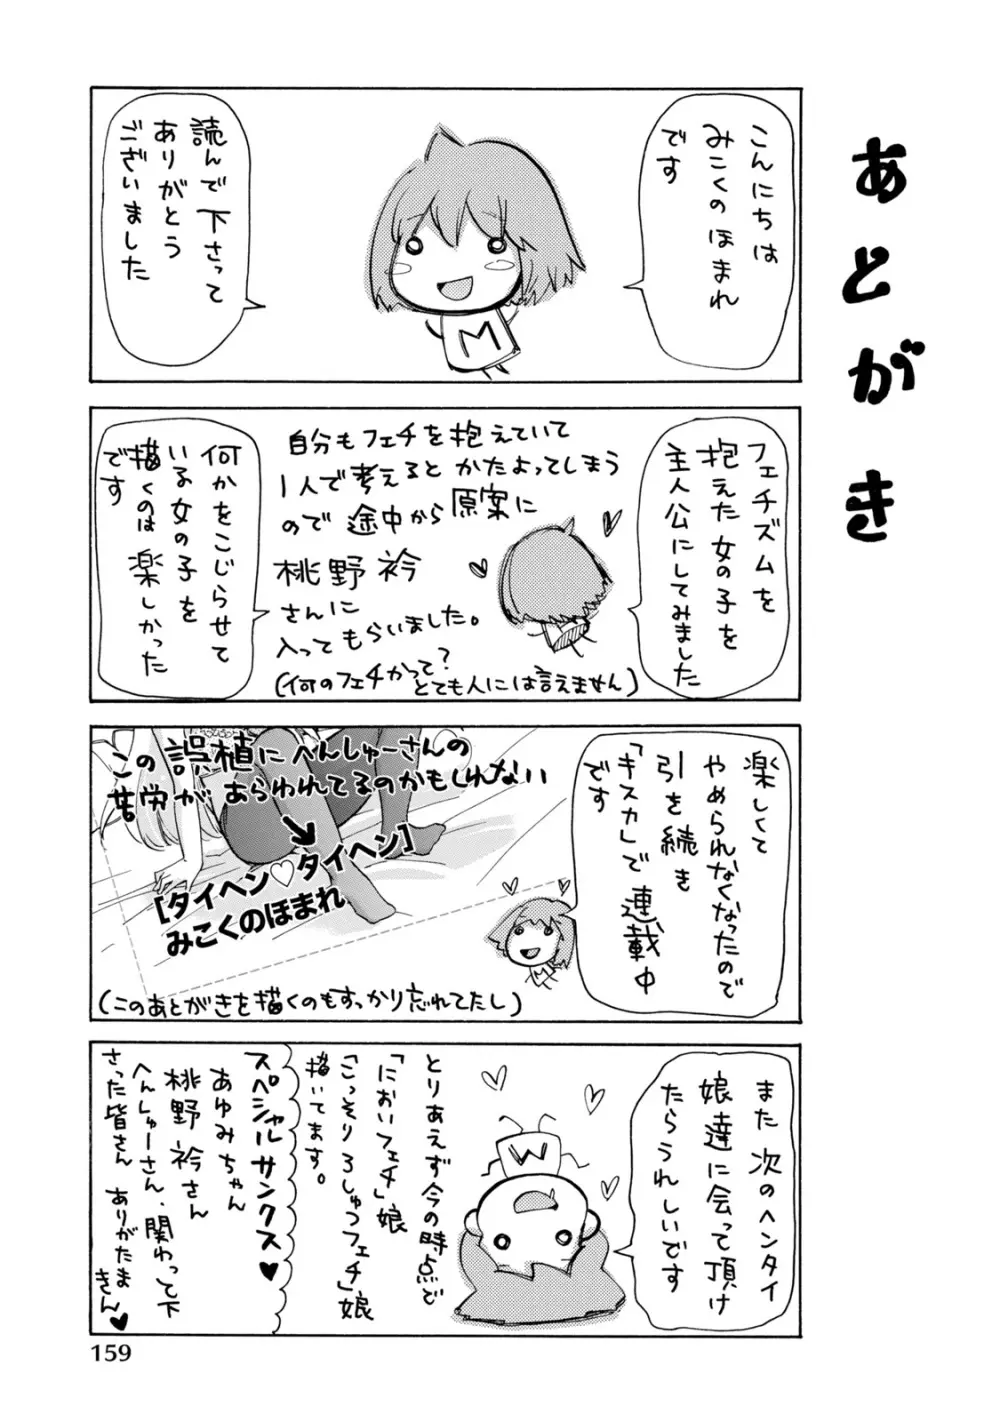 あとがき
こんにちは
みこくのほまれ
です
読んで下さって
ありがとう
ございました
M
フェチズムを
抱えた女の子を
主人公にしてみました
自分もフェチを抱えていて
1人で考えるとかたよってしまう
ので途中から原案に
桃野衿
さんに
入ってもらいました。
(何のフェチかって?
とても人には言えません)
何かをこじらせて
いる女の子を
描くのは楽しかった
です
楽しくて
やめられなくなったので
引き続き
「キスカ」で連載中
です
この誤植にへんしゅーさんの
苦労があらわれてるのかもしれない
[タイヘン♡タイヘン]
みこくのほまれ
M
(このあとがきを描くのもすっかり忘れてたし)
また次のヘンタイ
娘達に会って頂け
たらうれしいです
M
とりあえず今の時点で
「においフェチ」娘
「こっそりろしゅつフェチ」娘
描いてます。
スペシャルサンクス♥
あゆみちゃん
桃野衿さん
へんしゅーさん、関わって下
さった皆さん ありがたま
きん♥
159